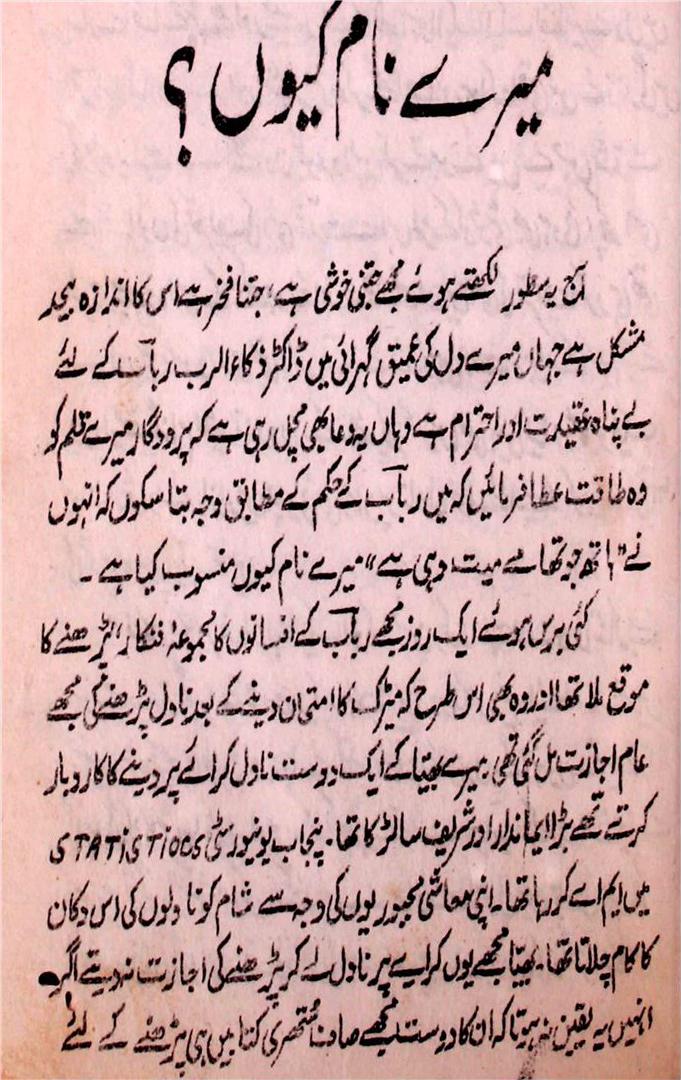 میرے نام کیوں؟
آج یہ سطور لکھتے ہوئے مجھے جتنی خوشی ہے، جتنا فخر ہے اس کا اندازہ بیحد
مشکل ہے جہاں میرے دل کی عمیق گہرائی میں ڈاکٹر ذکاء الرب رباب کے لئے
بے پناہ عقیدت اور احترام ہے وہاں یہ دعا بھی مچل رہی ہے کہ پروردگار میرے قلم کو
وہ طاقت عطا فرمائیں کہ میں رباب کے حکم کے مطابق وجہ بتا سکوں کہ انہوں
نے "ہاتھ جو تھامے میت وہی ہے" میرے نام کیوں منسوب کیا ہے ۔
کئی برس ہوئے ایک روز مجھے رباب کے افسانوں کا مجموعہ فنکار، پڑھنے کا
موقع ملا تھا اور وہ بھی اس طرح کہ میٹرک کا امتحان دینے کے بعد ناول پڑھنے کی مجھے
عام اجازت مل گئی تھی۔ میرے بھیا کے ایک دوست ناول کرائے پر دینے کا کاروبار
کرتے تھے بڑا ایماندار اور شریف سا لڑکا تھا۔ پنجاب یونیورسٹی STATiSTiOCS
میں ایم اے کر رہا تھا۔ اپنی معاشی مجبوریوں کی وجہ سے شام کو ناولوں کی اس دکان
کا کام چلاتا تھا۔ بھیا مجھے یوں کرایے پر ناول لے کر پڑھنے کی اجازت نہ دیتے اگر
انہیں یہ یقین نہ ہوتا کہ ان کا دوست مجھے صاف ستھری کتابیں ہی پڑھنے کے لئے